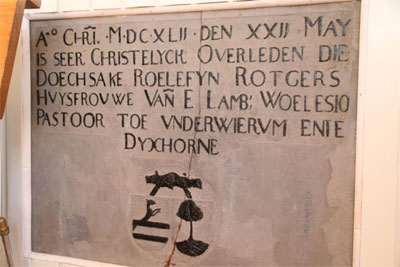 Aº CHRĪ. M·DC·XLII · DEN XXII MAY
IS SEER CHRISTELYCK OVERLEDEN DIE
DOECHSAKE ROELEFYN ROTGERS
HVYSFROUWE VAÑ E LAMB: WOELESIO
PASTOOR TOE VNDERWIERVM ENTE
DYXHORNE